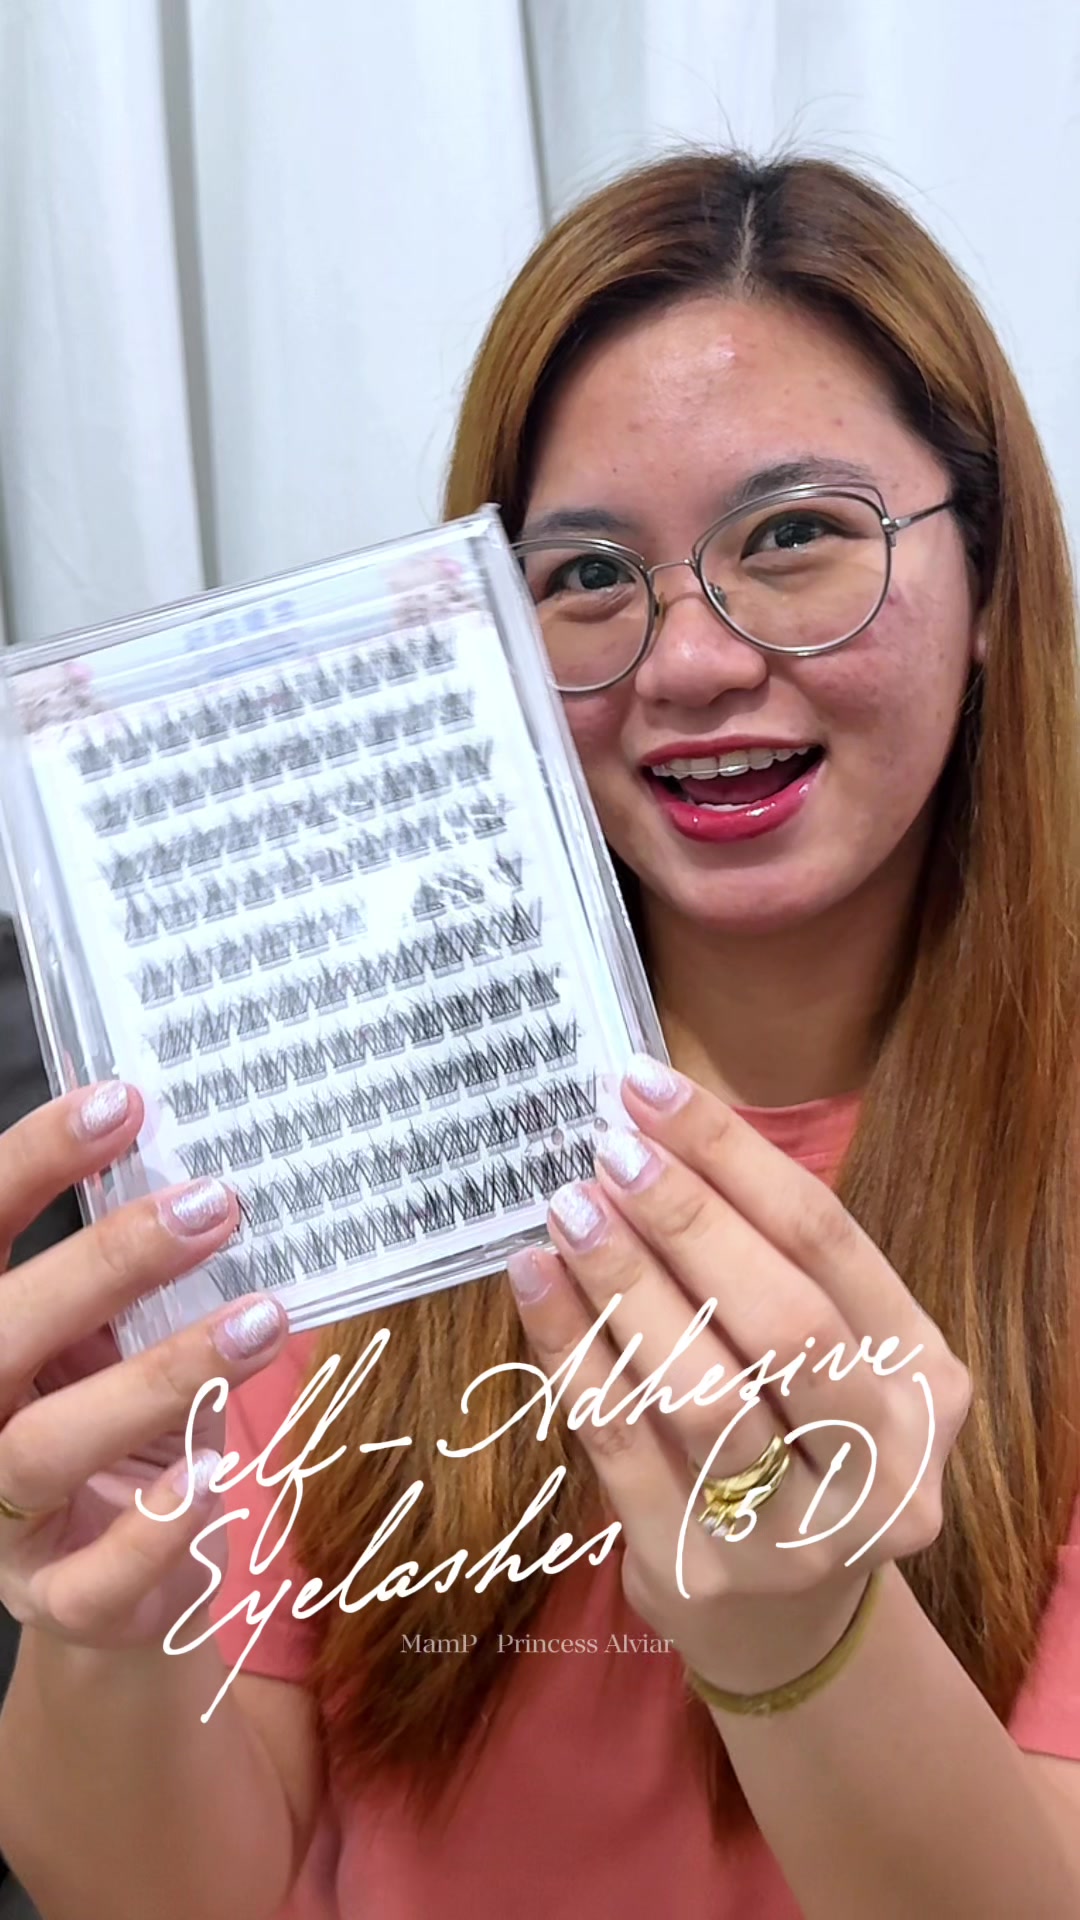 Self-Adhesive
Eyelashes (5D)
MamP Princess Alviar